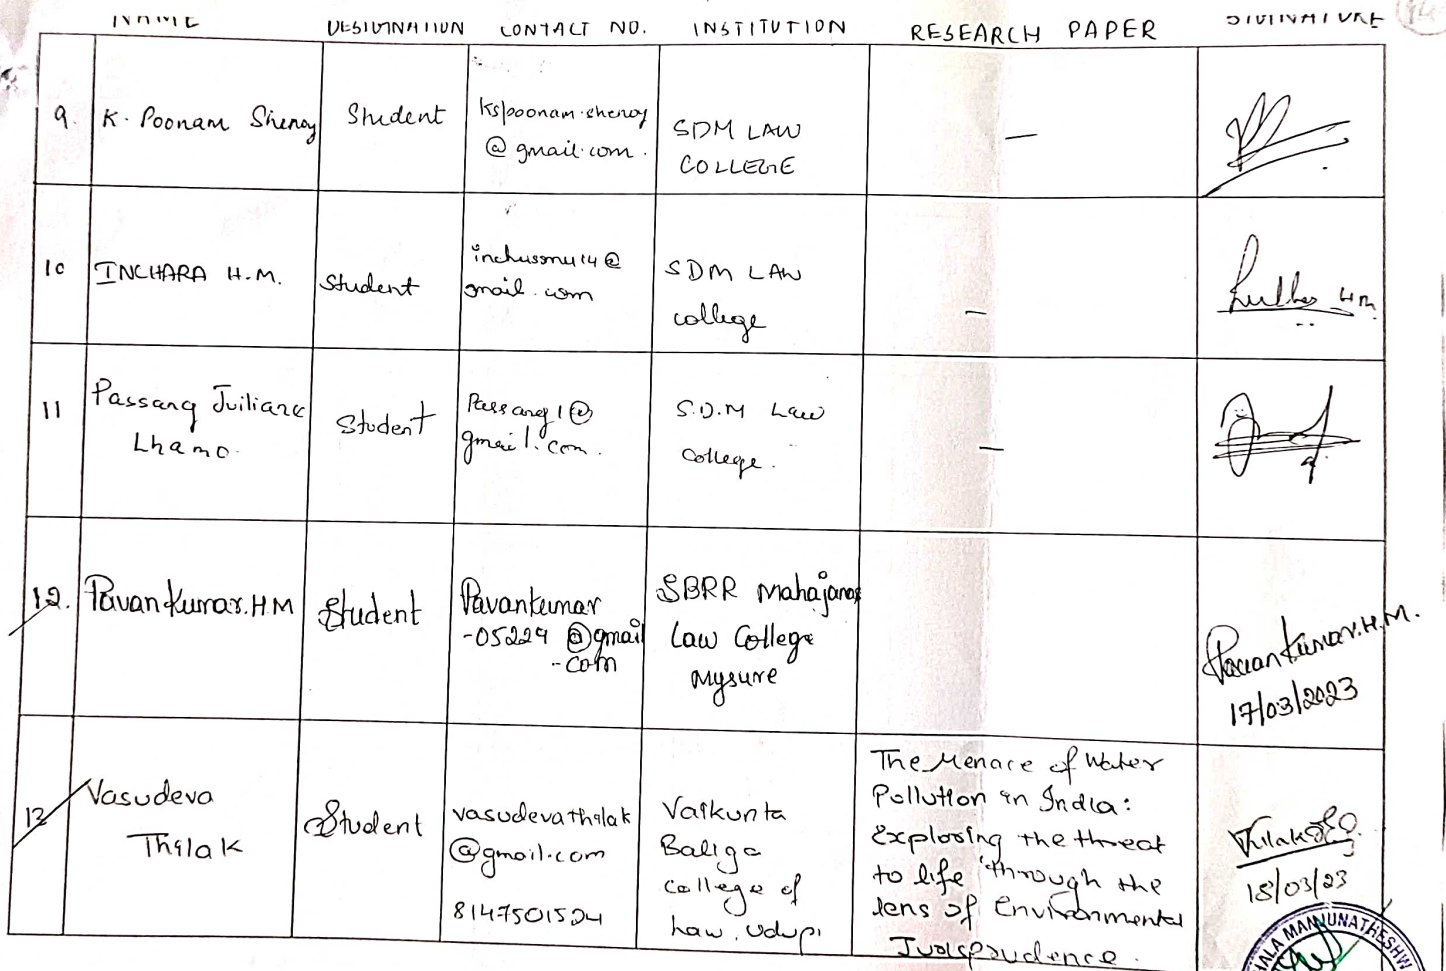 NAME DESIGNATION CONTACT NO. INSTITUTION RESEARCH PAPER SIGNATURE 14
9. K. Poonam Shenoy Student kspoonam.shenoy
@gmail.com.
SDM LAW
COLLEGE
—
10 INCHARA H.M. Student inchusomu14@
gmail.com
SDM LAW
college
—
H.M
11 Passang Juiliane
Lhamo.
Student
Passang1@
gmail.com.
S.D.M Law
College.
—
12. Pavan Kumar.H.M Student Pavankumar
-05229 @gmail
-com
SBRR Mahajana
Law College
Mysure
Pavan Kumar.H.M.
17/03/2023
Vasudeva
Thilak
Student
vasudevathilak
@gmail.com
8147501524
Vaikunta
Baliga
college of
Law, Udupi
The Menace of Water
Pollution in India:
Exploring the threat
to life through the
lens of Environmental
Jurisprudence.
Thilak
18/03/23
MANJUNATHESHW